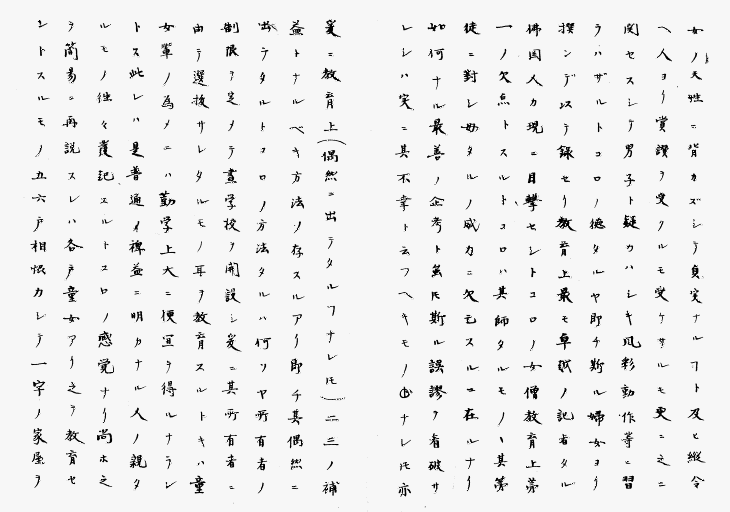 女ノ天性ニ背カズシテ貞実ナルフト及ヒ縦令
ヘ人ヨリ賞讃ヲ受クルモ受ケサルモ更ニ之ニ
関セスシテ男子ト疑カハシキ風彩動作等ニ習
ラハザルトコロノ徳タルヤ即チ斯ル婦女ヨリ
撰ンデステ録セリ教育上最モ卓越ノ記者タル
佛国人カ現ニ目撃セシトコロノ女僧教育上第
一ノ欠点トスルトコロハ其師タルモノハ其第
徒ニ対シ母タルノ威力ニ欠乏スルニ在ルナリ
如何ナル最善ノ企考ト雖𪜈斯ル誤謬ヲ看破サ
レシハ実ニ其不幸ト云フヘキモノナレ𪜈亦
爰ニ教育上(偶然ニ出テタルフナレ𪜈)二三ノ補
益トナルベキ方法ノ存スルアリ即チ其偶然ニ
出テタルトコロノ方法タルハ何ソヤ所有者ノ
制限ヲ定メテ昼学校ヲ開設シ爰ニ其所有者ニ
由テ選抜サレタルモノヽ耳ヲ教育スルトキハ童
女輩ノ為メニハ勤学上大ニ便宜ヲ得ルナラン
トス此レハ是普通ノ裨益ニ明カナル人ノ親タ
ルモノ往々覆記スルトコロノ感覚ナリ尚ホ之
ヲ簡易ニ再説スレハ各戸童女アリ之ヲ教育セ
ントスルモノ五六戸相恨カシテ一字ノ家屋ヲ